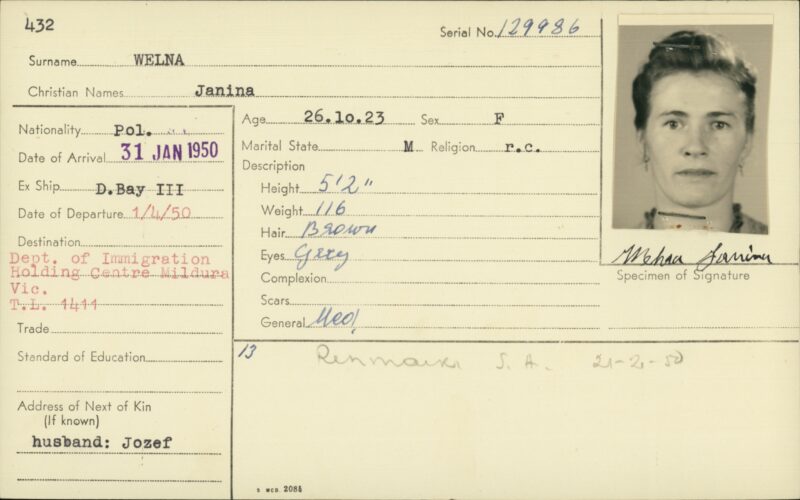 432
Serial No. 129986
Surname WELNA
Christian Names Janina
Nationality Pol.
Date of Arrival 31 JAN 1950
Ex Ship D.Bay III
Date of Departure 1/4/50
Destination
Dept. of Immigration
Holding Centre Mildura
Vic.
T.L. 1411
Trade
Standard of Education
Address of Next of Kin
(If known)
husband: Jozef
Age 26.10.23 Sex F
Marital State M Religion r.c.
Description
Height 5'2"
Weight 116
Hair Brown
Eyes Grey
Complexion
Scars
General Med.
Janina
Specimen of Signature
13 Renmark S. A. 21-2-50
2084